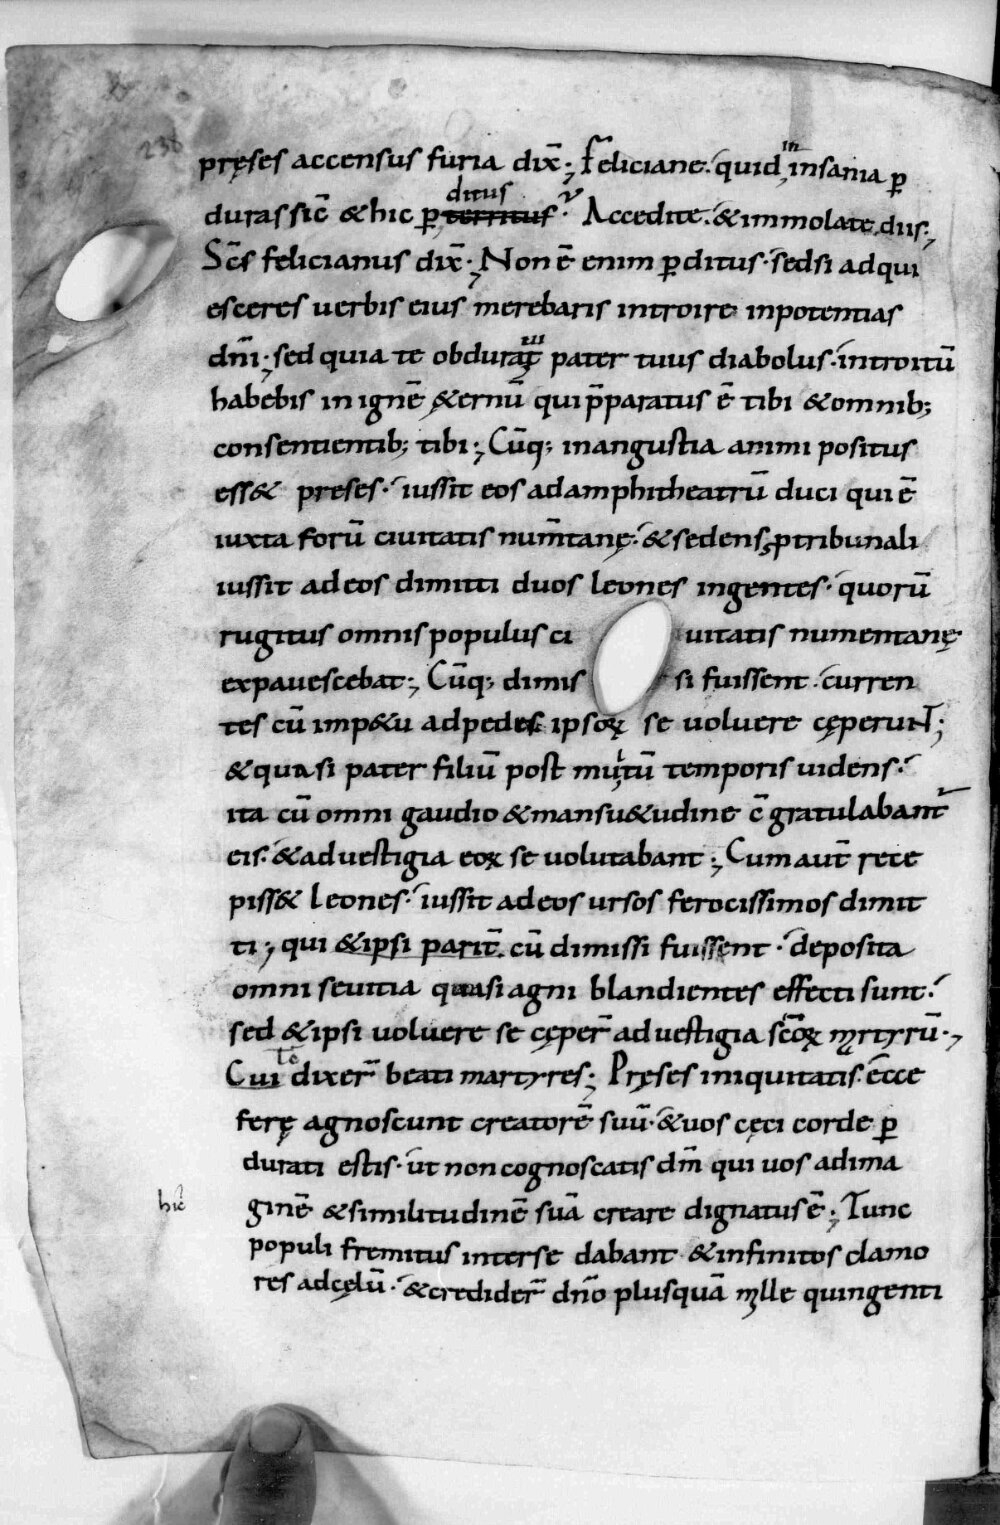 238
pręses accensus furia dix̄; Feliciane. quid in insania ꝑ
duras sic̄ & hic ꝑ territus ditus? Accedite. & immolate diis;
Sc̄s felicianus dix̄; Non ē enim ꝑditus. sed si adqui
esceres uerbis eius merebaris introire in potentias
dn̄i; sed quia te obdurauit pater tuus diabolus. introitū
habebis in ignē ęternū qui p̄paratus ē tibi & omnib;
consentientib; tibi; Cūq; in angustia animi positus
ess& preses. iussit eos ad amphitheatrū duci qui ē
iuxta forū ciuitatis num̄tanę. & sedens ꝓ tribunali
iussit ad eos dimitti duos leones ingentes. quorū
rugitus omnis populus ci uitatis numentanę
expauescebat; Cūq; dimis si fuissent. curren
tes cū imp&u ad pedes ipsoꝝ se uoluere cęperunt;
& quasi pater filiū post multū temporis uidens.
ita cū omni gaudio & mansu&udine c̄gratulabant᷑
eis. & ad uestigia eoꝝ se uolutabant; Cum aut̄ rece
piss& leones. iussit ad eos ursos ferocissimos dimit
ti; qui & ipsi parit̄ cū dimissi fuissent. deposita
omni seuitia quasi agni blandientes effecti sunt.
sed & ipsi uoluere se cęper̄ ad uestigia sc̄oꝝ mrtyrū;
Cui dixer̄ beati martyres; Pręses iniquitatis. ecce
ferę agnoscunt creatorē suū. & uos cęci corde ꝑ
durati estis. ut non cognoscatis dm̄ qui uos ad ima
hic
ginē & similitudinē suā creare dignatus ē; Tunc
populi fremitus inter se dabant & infinitos clamo
res ad cęlū. & credider̄ dn̄o plusquā mlle quingenti